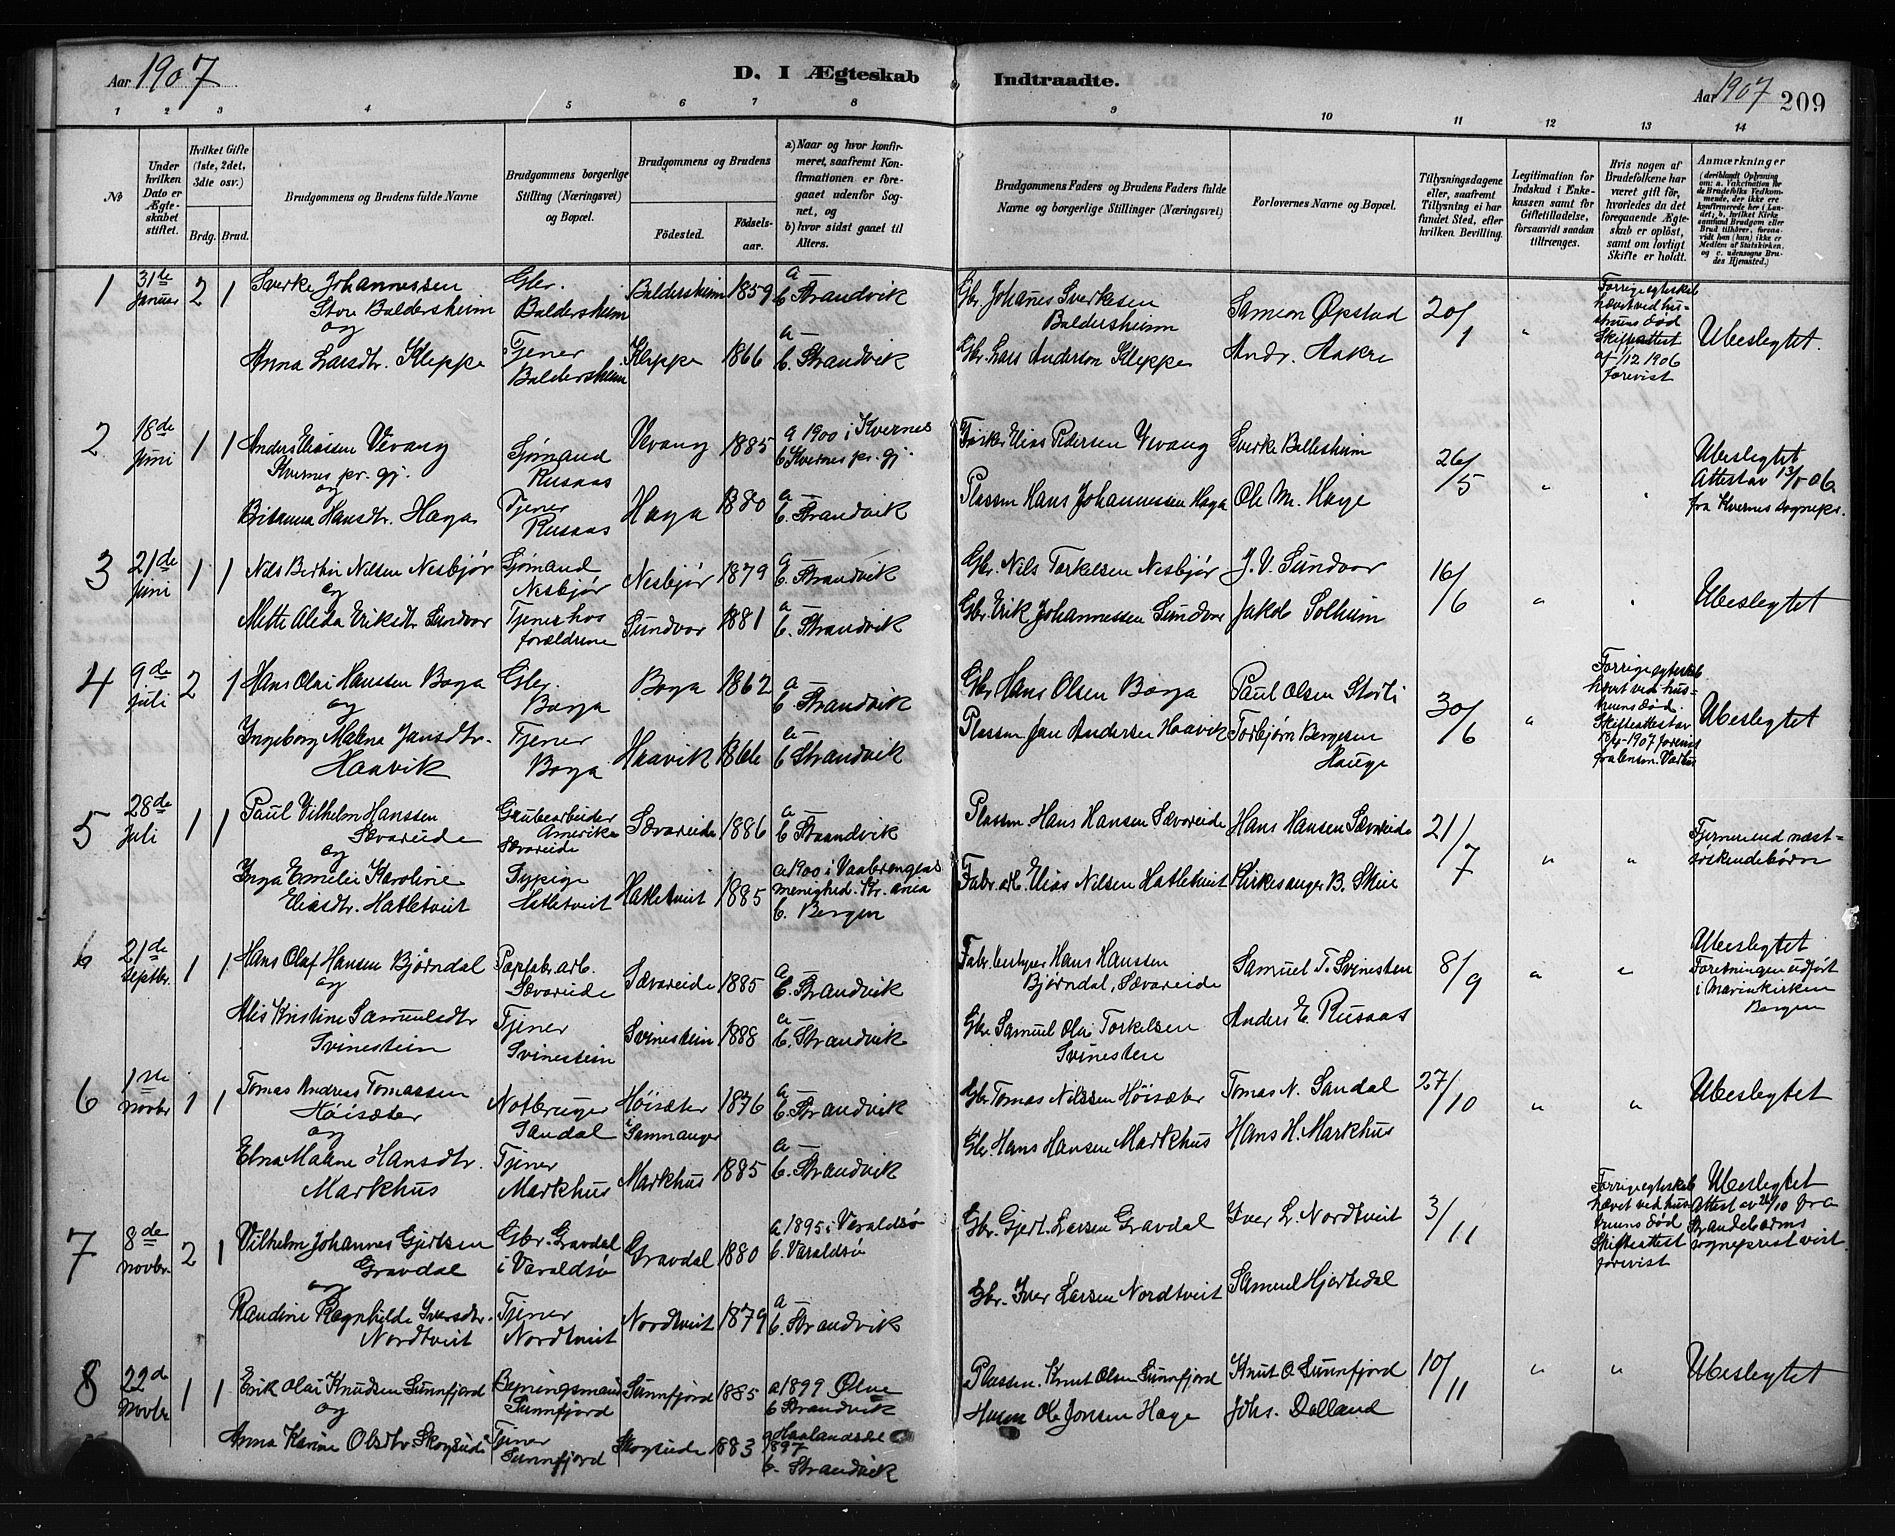 Aar 1907
D. I Ægteskab
Indtraadte.
Aar 1907 209
1 2 3 4 5 6 7 8 9 10 11 12 13 14
№
Under hvilken Dato er Ægteskabet stiftet.
Hvilket Gifte (1ste, 2det, 3die osv.)
Brdg. Brud.
Brudgommens og Brudens fulde Navne
Brudgommens borgerlige Stilling (Næringsvei) og Bopæl.
Brudgommens og Brudens
Fødested.
Fødselsaar.
a) Naar og hvor konfirmeret, saafremt Konfirmationen er foregaaet udenfor Sognet, og
b) hvor sidst gaaet til Alters.
Brudgommens Faders og Brudens Faders fulde Navne og borgerlige Stillinger (Næringsvei)
Forlovernes Navne og Bopæl.
Tillysningsdagene eller, saafremt Tillysning ei har fundet Sted, efter hvilken Bevilling.
Legitimation for Indskud i Enkekassen samt for Giftetilladelse, forsaavidt saadan tiltrænges.
Hvis nogen af Brudefolkene har været gift før, hvorledes da det foregaaende Ægteskab er opløst, samt om lovligt Skifte er holdt.
Anmærkninger
1 31te Januar 2 1
Sverke Johannessen
Store Baldersheim
og
Gbr. Baldersheim
Baldersheim 1859
a — b. Strandvik
Gbr. Johanes Sverkesen Baldersheim
Samson Øpstad
20/1 "
Forrige egteskab hævet ved hustruens død Skifteattest af 1/12 1906 forevist
Ubeslegtet.
Anna Larsdtr. Kleppe
Tjener Baldersheim
Kleppe 1866
a — b. Strandvik
Gbr. Lars Anderson Kleppe
Andr. Aakre
2 18de Juni 1 1
Anders Eliassen Vevang
Kvernes pr. gj.
og
Sjømand Rusaas
Vevang 1885
a 1900 i Kvernes b. Kvernes pr. gj.
Fisker Elias Pedersen Vevang
26/5 " "
Ubeslegtet
Attest av 13/5 06 fra Kvernes sognepr.
Britanna Hansdtr. Haga
Tjener Rusaas
Haga 1880
a — b. Strandvik
Plassm Hans Johannessen Haga
Ole M. Hage
3 21de Juni 1 1
Nils Bertin Nilsen Nesbjør
og
Sjømand Nesbjør
Nesbjør 1879
a — b. Strandvik
Gbr. Nils Torkelsen Nesbjør
J. V. Sundvor
16/6 " "
Ubeslegtet
Mette Alida Eriksdtr Sundvor
Tjener hos forældrene
Sundvor 1881
a — b. Strandvik
Gbr Erik Johannessen Sundvor
Jakob Solheim
4 9de juli 2 1
Hans Olai Hanssen Boga
og
Gbr. Boga
Boga 1862
a — b. Strandvik
Gbr. Hans Olsen Boga
Paul Olsen Storli
30/6 "
Forrige egteskab hævet ved hustruens død.
Ubeslegtet
Ingeborg Malena Jansdtr.
Haavik
Tjener Boga
Haavik 1866
a — b Strandvik
Plassm Jan Andersen Haavik
Torbjørn Bergesen Hauge
5 28de Juli 1 1
Paul Vilhelm Hanssen
Sævareide
og
Grubearbeider Amerika Sævareide
Sævareide 1886
a — b Strandvik
Plassm. Hans Hansen Sævareide
Hans Hansen Sævareide
21/7 " "
Fjermere end næstsøskendebørn
Inga Emelie Karoline
Eliasdtr. Hatletveit
Sypige Hatletveit
Hatletveit 1885
a 1900 i Vaalerengens menighed. Kr.ania
b. Bergen
Fabr. arb. Elias Nilsen Hatletveit
Kirkesanger B. Skeie
6 21de Septbr. 1 1
Hans Olaf Hansen Bjørndal
og
Papfabr. arb. Sævareide
Sævareide 1885
a — b. Strandvik
Fabr. bestyrer Hans Hanssen Bjørndal, Sævareide
Samuel T. Svinesten
8/9 " "
Ubeslegtet
Forretningen udført i Mariakirken Bergen
Alis Kristine Samuelsdtr
Svinestein
Tjener Svinestein
Svinestein 1888
a — b. Strandvik
Gbr. Samuel Olai Torkelsen Svinesten
Anders E. Rusaas
6 1ste Novbr 1 1
Tomas Andreas Tomassen
Høisæter
og
Notbruger Sandal
Høisæter Sammanger 1876
a — b. Strandvik
Gbr Tomas Nilssen Høisæter
Tomas N. Sandal
27/10 " "
Ubeslegtet
Elna Malene Hansdtr.
Markhus
Tjener Markhus
Markhus 1885
a — b. Strandvik
Gbr. Hans Hansen Markhus
Hans H. Markhus
7 8de Novbr. 2 1
Vilhelm Johannes Gjertsen
Gravdal
og
Gbr. Gravdal i Varaldsø
Gravdal 1880
a 1895 i Varaldsø b. Varaldsø
Gbr. Gjert Larsen Gravdal
Iver L. Nordtveit
3/11
Forrige egteskab hævet ved hustruens død Skifteattest forevist
Ubeslegtet
Attest av 26/10 fra Strandebarms sogneprest vist.
Randine Ragnhilde Iversdtr.
Nordtveit
Tjener Nordtveit
Nordtveit 1879
a — b. Strandvik
Gbr. Iver Larsen Nordtveit
Samuel Hjortedal
8 22de Novbr 1 1
Erik Olai Knudsen Sunnfjord
og
Sunnfjord
Sunnfjord 1885
a 1899 Ølve b Strandvik
Plassm. Knut Olsen Sunnfjord
Knut O Sunnfjord
10/11 " "
Ubeslegtet
Anna Karine Olsdtr Skogseide
Tjener Sunnfjord
Skogseide 1883
1897 b. Strandvik
Husm Ole Jonsen Hage
Johs. Dalland